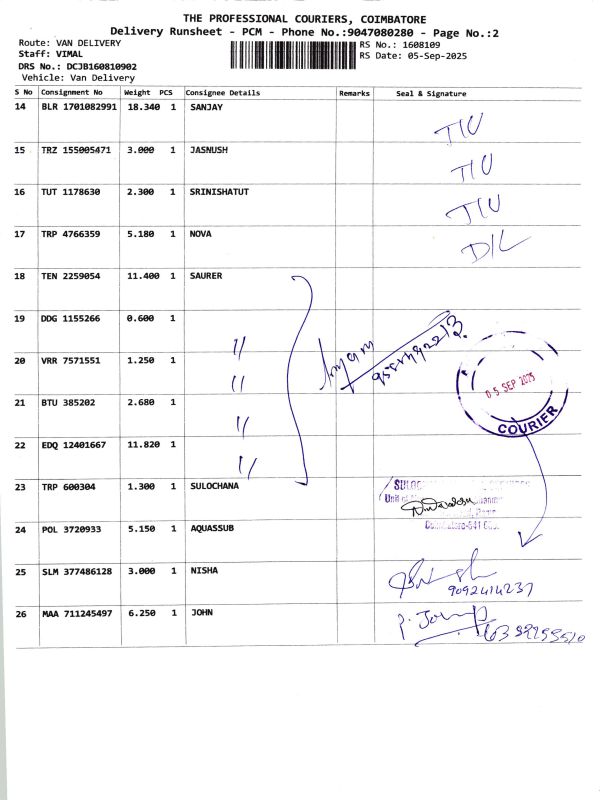 THE PROFESSIONAL COURIERS, COIMBATORE
Delivery Runsheet - PCM - Phone No.:9047080280 - Page No.:2
Route: VAN DELIVERY
Staff: VIMAL
DRS No.: DCJB160810902
Vehicle: Van Delivery
RS No.: 1608109
RS Date: 05-Sep-2025
S No Consignment No Weight PCS Consignee Details Remarks Seal & Signature
14 BLR 1701082991 18.340 1 SANJAY
15 TRZ 155005471 3.000 1 JASNUSH
16 TUT 1178630 2.300 1 SRINISHATUT
17 TRP 4766359 5.180 1 NOVA D/L
18 TEN 2259054 11.400 1 SAURER
19 DDG 1155266 0.600 1 //
20 VRR 7571551 1.250 1 //
21 BTU 385202 2.680 1 //
22 EDQ 12401667 11.820 1 //
05 SEP 2025
COURIER
23 TRP 600304 1.300 1 SULOCHANA
Unit of
Coimbatore-641
24 POL 3720933 5.150 1 AQUASSUB
25 SLM 377486128 3.000 1 NISHA
9092414237
26 MAA 711245497 6.250 1 JOHN